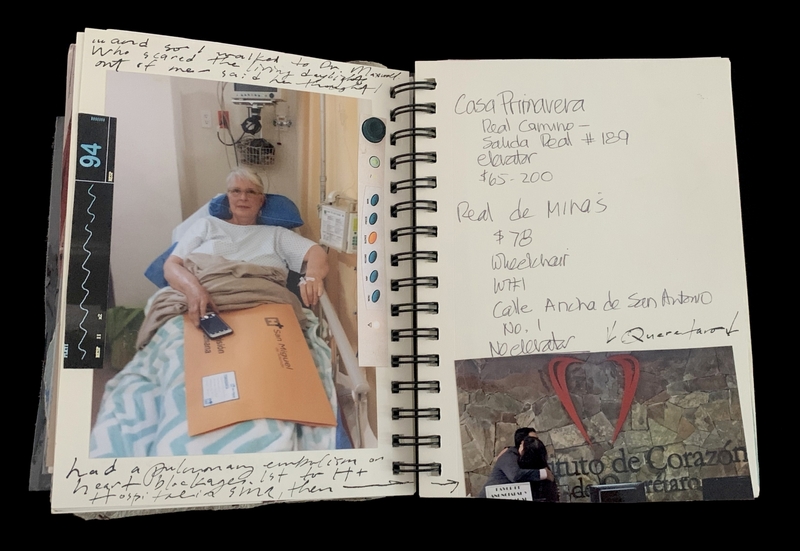 ...and so I walked to Dr. Maxwell
Who scared the living daylights
out of me - said he thought I
94
San Miguel
had a pulmonary embolism or
heart blockage. 1st to H+
Hospital in SMA, then
Casa Primavera
Real Camino -
Salida Real #189
elevator
$65-200
Real de Minas
$78
Wheelchair
Wifi
Calle Ancha de San Antonio
No. 1
No elevator
↓ Queretaro ↓
tuto de Corazón
de Querétaro